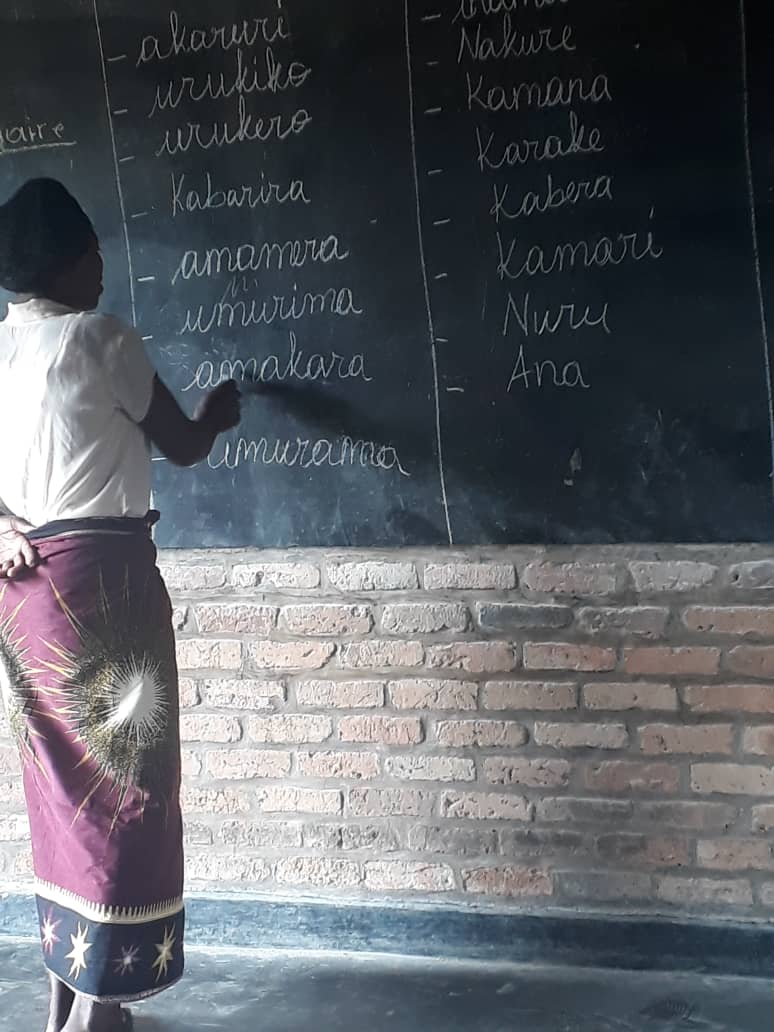 - akaruri
- urukiko
- urukero
- Kabarira
- amamera
- umurima
- amakara
- umurama
- Nakure
- Kamana
- Karake
- Kabera
- Kamari
- Nuru
- Ana